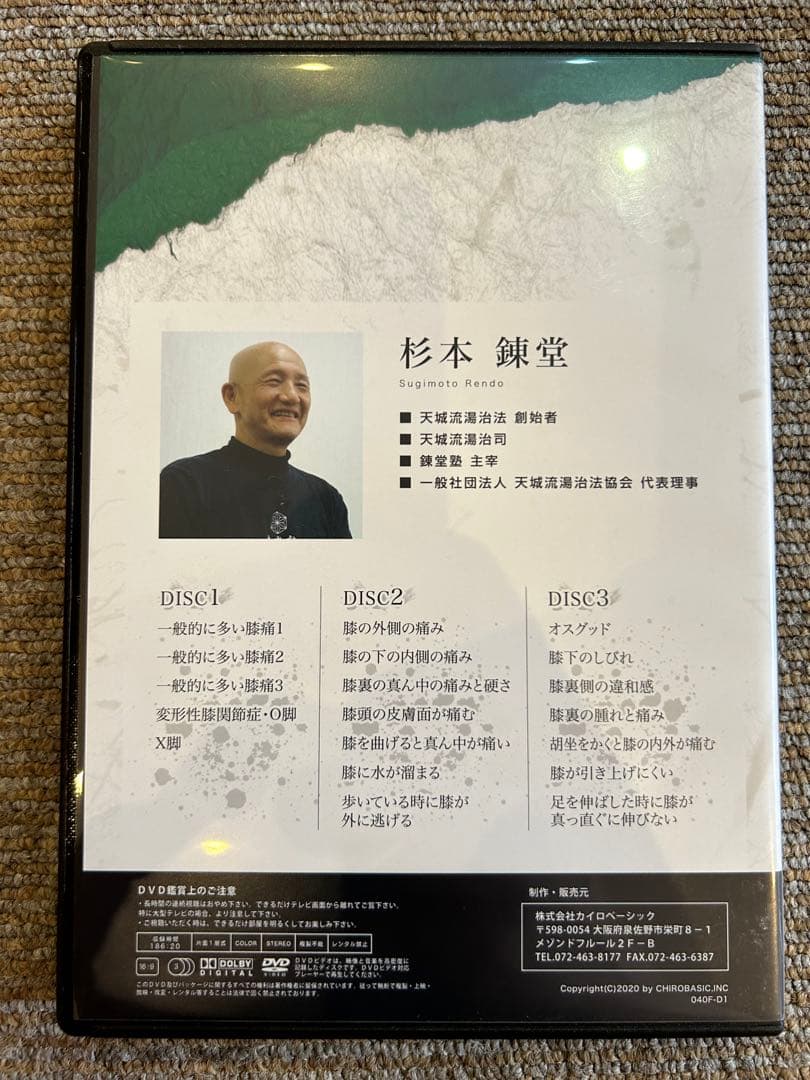 杉本 錬堂
Sugimoto Rendo
■ 天城流湯治法 創始者
■ 天城流湯治司
■ 錬堂塾 主宰
■ 一般社団法人 天城流湯治法協会 代表理事
DISC1
一般的に多い膝痛1
一般的に多い膝痛2
一般的に多い膝痛3
変形性膝関節症・O脚
X脚
DISC2
膝の外側の痛み
膝の下の内側の痛み
膝裏の真ん中の痛みと硬さ
膝頭の皮膚面が痛む
膝を曲げると真ん中が痛い
膝に水が溜まる
歩いている時に膝が
外に逃げる
DISC3
オスグッド
膝下のしびれ
膝裏側の違和感
膝裏の腫れと痛み
胡坐をかくと膝の内外が痛む
膝が引き上げにくい
足を伸ばした時に膝が
真っ直ぐに伸びない
DVD鑑賞上のご注意
・長時間の連続視聴はおやめ下さい。できるだけテレビ画面から離れてご覧下さい。
特に大型テレビの場合、より注意して下さい。
・ご視聴いただく時は、できるだけ部屋を明るくしてお楽しみ下さい。
収録時間
186:20
片面1層式 COLOR STEREO 複製不能 レンタル禁止
16:9 3 DOLBY DIGITAL DVD VIDEO
DVDビデオは、映像と音声を高密度に
記録したディスクです。DVDビデオ対応
プレーヤーで再生してください。
このDVD及びパッケージに関するすべての権利は著作権者に留保されています。従って無断で複製・上映・
放映・改変・レンタル等することは法律で固く禁止されております。
制作・販売元
株式会社カイロベーシック
〒598-0054 大阪府泉佐野市栄町8-1
メゾンドフルール2F-B
TEL.072-463-8177 FAX.072-463-6387
Copyright(C)2020 by CHIROBASIC.INC
040F-D1